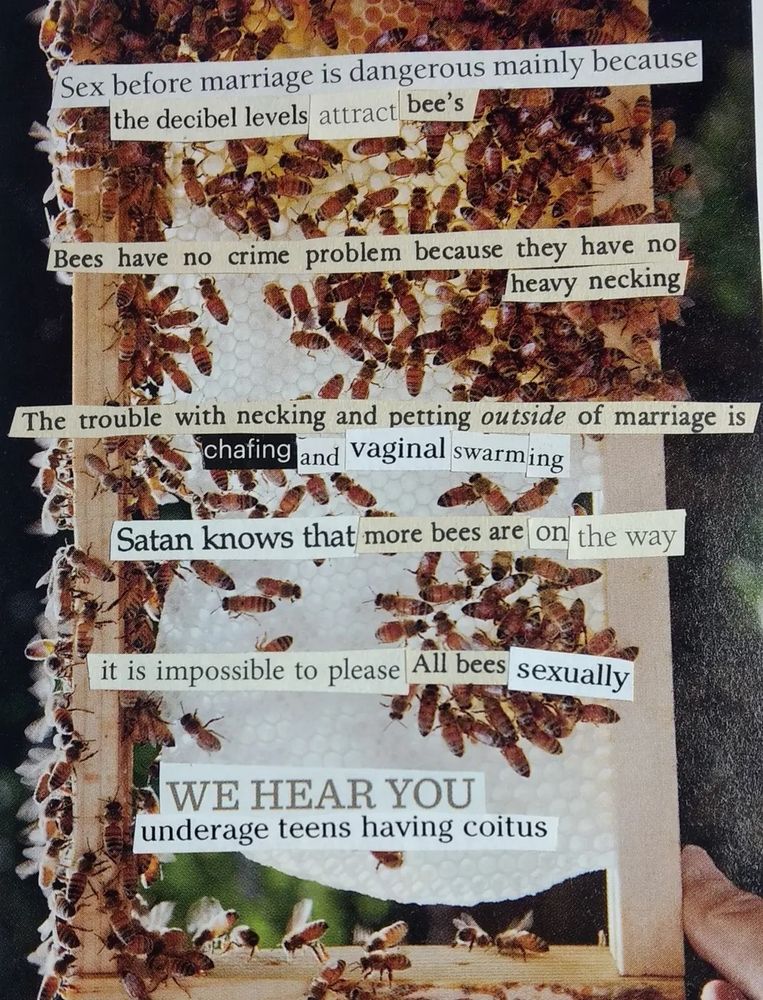 Sex before marriage is dangerous mainly because
the decibel levels attract bee's
Bees have no crime problem because they have no
heavy necking
The trouble with necking and petting outside of marriage is
chafing and vaginal swarming
Satan knows that more bees are on the way
it is impossible to please All bees sexually
WE HEAR YOU
underage teens having coitus